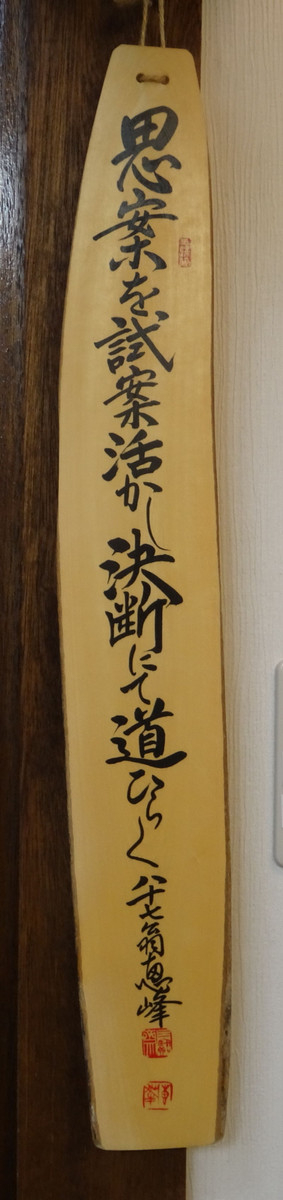 思案を試案活かし決断にて道ひらく 八十七翁恵峰